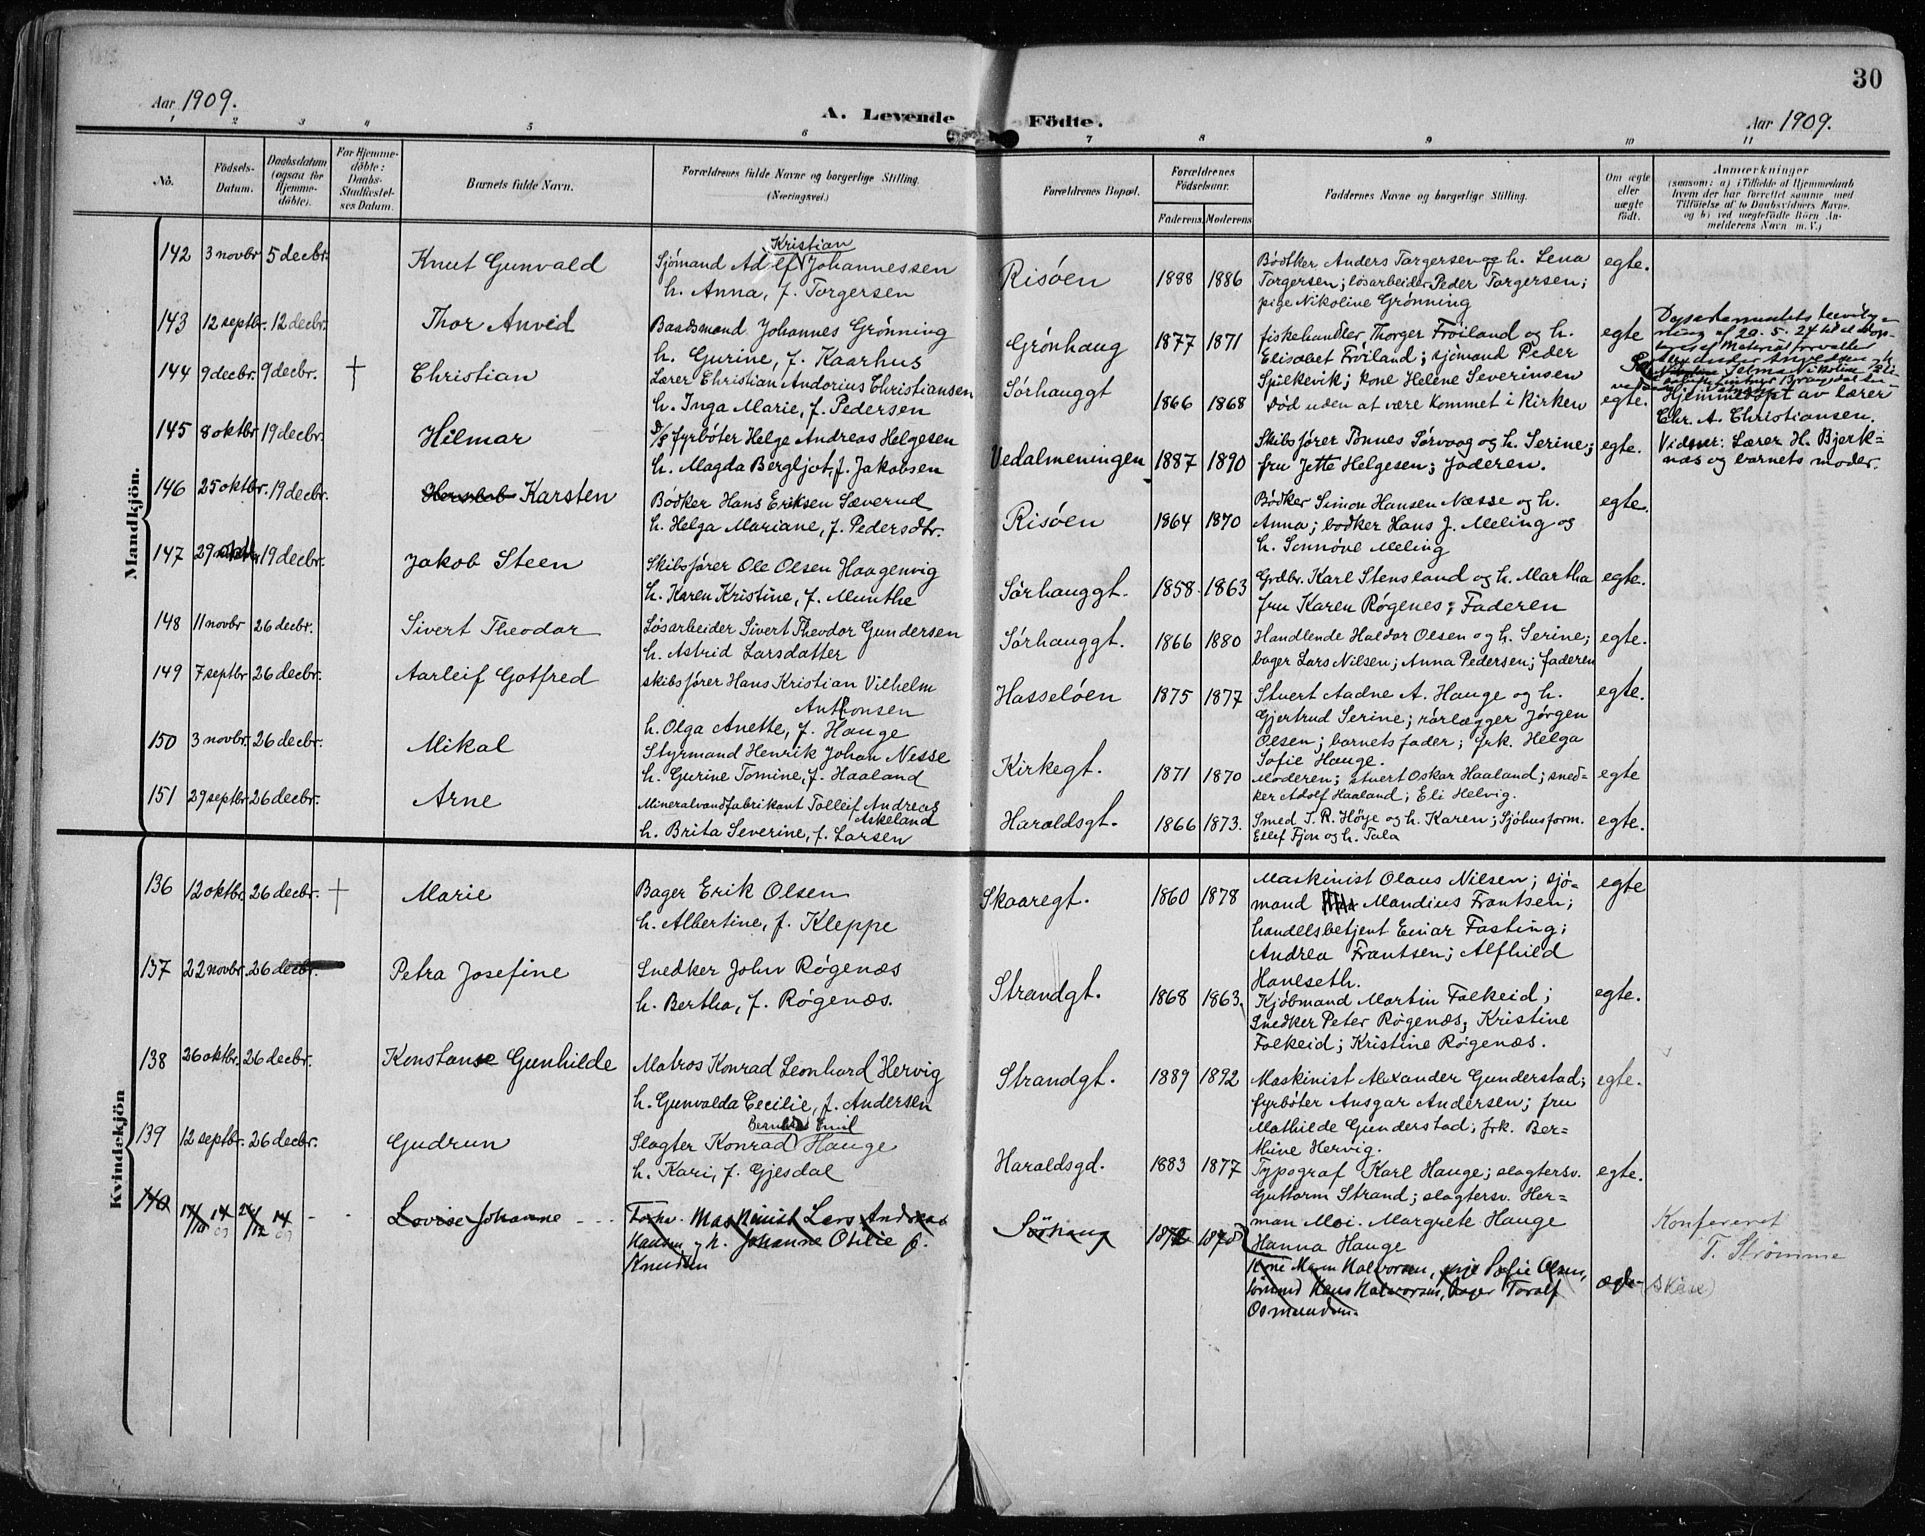 30
Aar 1909.
A. Levende Födte.
Aar 1909.
1 2 3 4 5 6 7 8 9 10 11
No.
Födsels-
Datum.
Daabsdatum
(ogsaa for
Hjemme-
döbte).
For Hjemme-
döbte:
Daabs-
Stadfæstel-
ses Datum.
Barnets fulde Navn.
Forældrenes fulde Navne og borgerlige Stilling.
(Næringsvei.)
Forældrenes Bopæl.
Forældrenes
Födselsaar.
Faderens. Moderens.
Faddernes Navne og borgerlige Stilling.
Om ægte
eller
uægte
födt.
Anmærkninger
(saasom: a) i Tilfælde af Hjemmedaab
hvem der har forrettet samme med
Tilföielse af to Daabsvidners Navne,
og b) ved uægtefödte Börn An-
melderens Navn m. V.)
Mandkjön.
142 3 novbr 5 decbr. Knut Gunvald
Kristian
Sjømand Adolf Johannessen
h. Anna, f. Torgersen
Risøen 1888 1886
Bødtker Anders Torgersen og h. Lena
Torgersen; løsarbeider Peder Torgersen;
pige Nikoline Grønning
egte.
143 12 septbr. 12 decbr. Thor Anvid
Baadsmand Johannes Grønning
h. Gurine, f. Kaarhus
Grønhaug 1877 1871
fiskehandler Thorger Frøiland og h.
Elisabet Frøiland; sjømand Peder
Spilkevik; kone Helene Severinsen
egte
Departementets bevilg-
ning af 20. 5. 24 til at
Materialforvalter
Selma Nikoline
144 9 decbr. 9 decbr. † Christian
Lærer Christian Andorius Christiansen
h. Inga Marie, f. Pedersen
Sørhauggt 1866 1868
Død uden at være kommet i kirken
egte.
Hjemmedøpt av lærer
Chr. A. Christiansen.
Vidner: Lærer H. Bjerk=
næs og barnets moder.
145 8 oktbr 19 decbr. Hilmar
D/S fyrbøter Helge Andreas Helgesen
h. Magda Bergljot, f. Jakobsen
Vedalmeningen 1887 1890
Skibsfører Tønnes Sørvaag og h. Serine;
fru Jette Helgesen; Faderen.
egte.
146 25 oktbr. 19 decbr. Karsten
Bødker Hans Eriksen Sæverud
h. Helga Mariane, f. Pedersdtr.
Risøen 1864 1870
Bødker Simon Hansen Næsse og h.
Anna; bødker Hans J. Meling og
h. Sonnøve Meling
egte.
147 29 19 decbr. Jakob Steen
Skibsfører Ole Olsen Haagenvig
h. Karen Kristine, f. Munthe
Sørhauggt. 1858 1863
Grdbr. Karl Stensland og h. Martha
fru Karen Røgenes; Faderen
egte.
148 11 novbr 26 decbr. Sivert Theodor
Løsarbeider Sivert Theodor Gundersen
h. Astrid Larsdatter
Sørhauggt. 1866 1880
Handlende Haldor Olsen og h. Serine;
bager Lars Nilsen; Anna Pedersen; faderen
egte.
149 7 septbr 26 decbr. Aarleif Gotfred
skibsfører Hans Kristian Vilhelm
Anthonsen
h. Olga Anette, f. Hauge
Hasseløen 1875 1877
Stuert Aadne A. Hauge og h.
Gjertrud Serine; rørlægger Jørgen
Olsen; barnets fader; frk. Helga
Sofie Hauge.
egte.
150 3 novbr. 26 decbr. Mikal
Styrmand Henrik Johan Nesse
h. Gurine Tomine, f. Haaland
Kirkegt. 1871 1870
Moderen; stuert Oskar Haaland; sned-
ker Adolf Haaland; Eli Helvig.
egte
151 29 septbr 26 decbr. Arne
Mineralvandfabrikant Tolleif Andreas
Askeland
h. Brita Severine, f. Larsen
Haraldsgt. 1866 1873.
Smed T. R. Høye og h. Karen; Sjøhusform.
Ellef Fjon og h. Tala
egte.
Kvindekjön
136 12 oktbr. 26 decbr. † Marie
Bager Erik Olsen
h. Albertine, f. Kleppe
Skaaregt. 1860 1878
Maskinist Olaus Nilsen; sjø-
mand Mandius Frantsen;
handelsbetjent Einar Fasting;
Andrea Frantsen; Alfhild
Haneseth.
egte
137 22 novbr. 26 decbr. Petra Josefine
Snedker John Røgenæs
h. Bertha, f. Røgenæs.
Strandgt. 1868 1863.
Kjøbmand Martin Falkeid;
Snedker Peter Røgenæs; Kristine
Falkeid; Kristine Røgenæs.
egte.
138 26 oktbr. 26 decbr. Konstanse Gunhilde
Matros Konrad Leonhard Hervig
h. Gunvalda Cecilie, f. Andersen
Strandgt. 1889 1892
Maskinist Alexander Gunderstad;
fyrbøter Ansgar Andersen; fru
Mathilde Gunderstad; frk. Ber=
thine Hervig.
egte.
139 12 septbr. 26 decbr. Gudrun
Emil
Slagter Konrad Hauge
h. Kari, f. Gjesdal
Haraldsgd. 1883 1877
Typograf Karl Hauge; slagtersv.
Guttorm Strand; slagtersv. Her=
man Moi. Margrete Hauge
Hanna Hauge
egte.
140 Lovise Johanne
Maskinist Lars Andreas
Hansen og h. Johanne Otilie f.
Knudsen
Sørhaug 1872 1878
Kone Maren Halvorsen, pige Sofie Olsen,
sømand Hans Halvorsen, bager Toralf
Osmundsen.
egte
Konfereret
T. Strømme